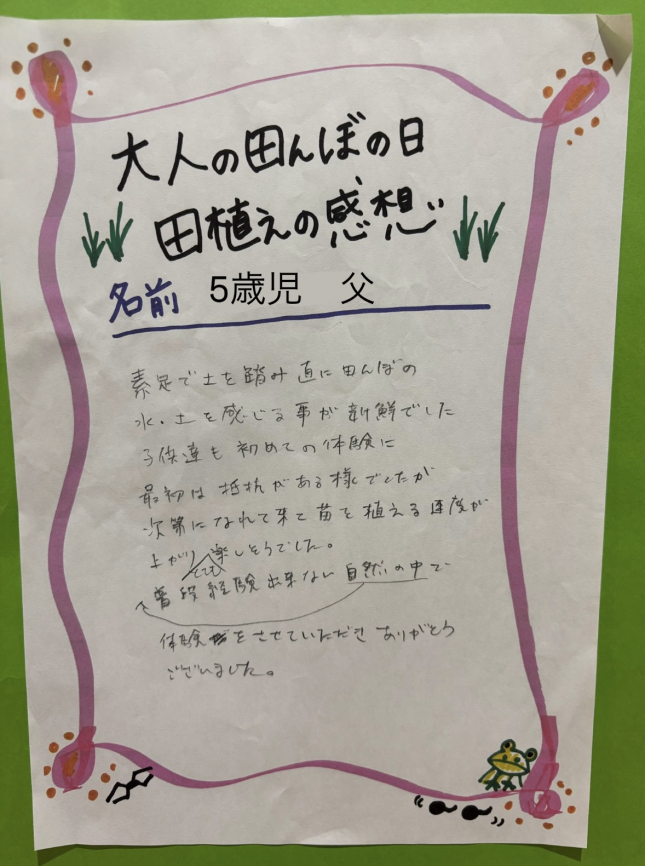 大人の田んぼの日
田植えの感想
名前 5歳児 父
素足で土を踏み 直に田んぼの
水・土を感じる事が新鮮でした
子供達も初めての体験に
最初は抵抗がある様でしたが
次第になれて来て苗を植える速度が
上がり楽しそうでした。
とても
普段経験出来ない自然の中で
体験をさせていただきありがとう
ございました。